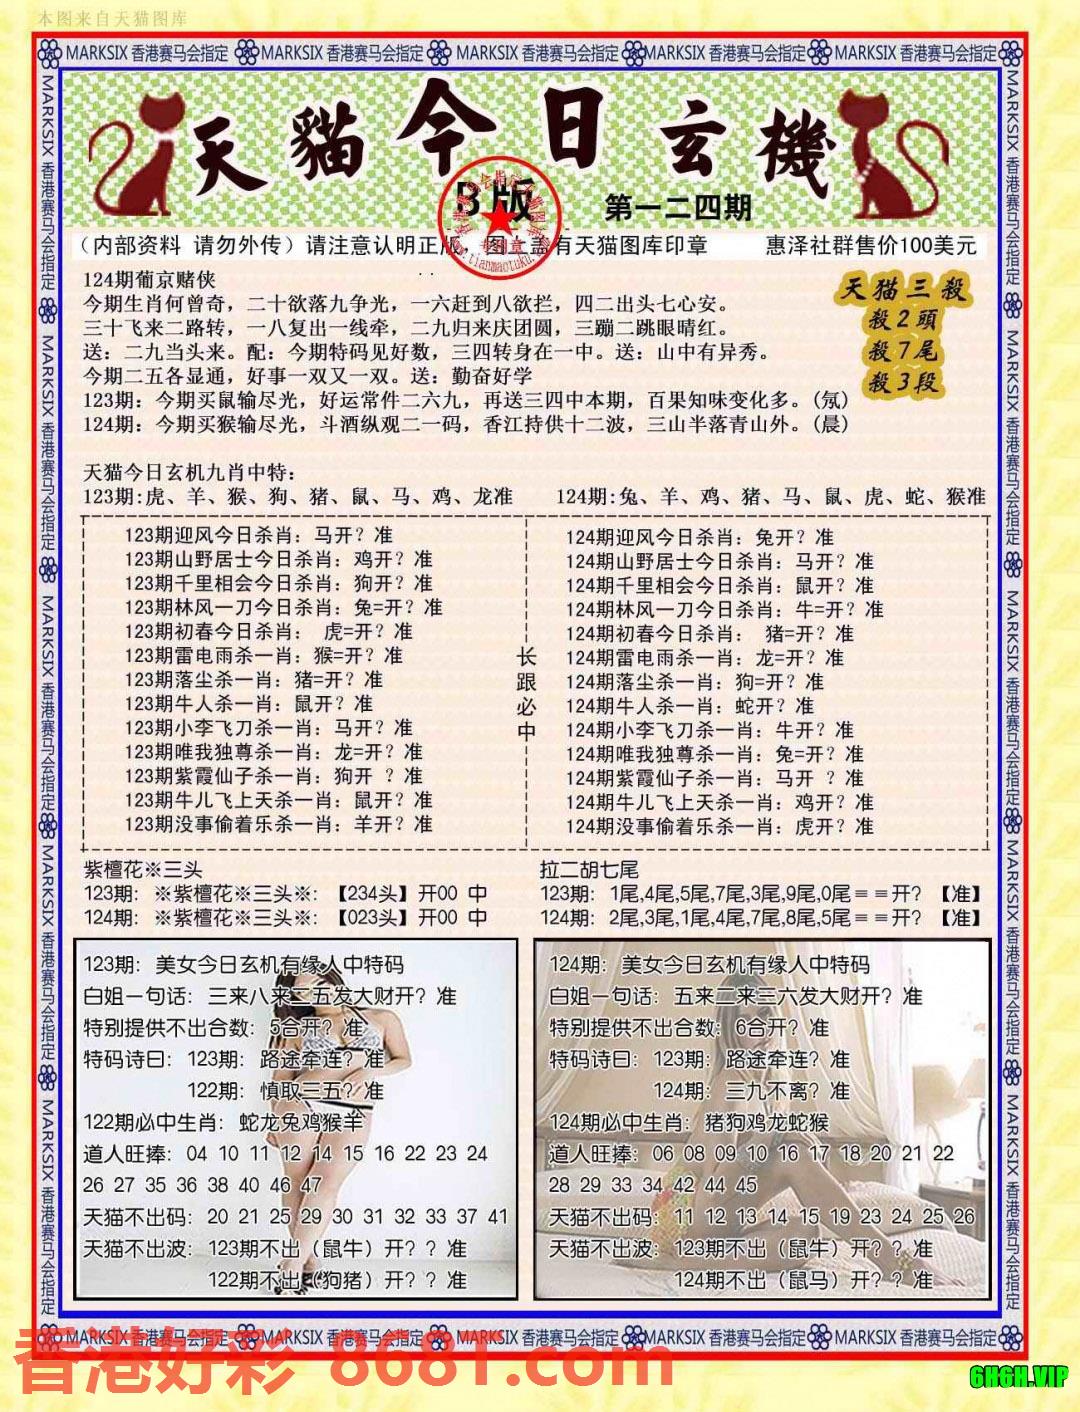 本图来自天猫图库
MARKSIX 香港赛马会指定 MARKSIX 香港赛马会指定 MARKSIX 香港赛马会指定 MARKSIX 香港赛马会指定 MARKSIX 香港赛马会指定
天貓今日玄機
B版 第一二四期
（内部资料 请勿外传）请注意认明正版，图上盖有天猫图库印章 惠泽社群售价100美元
124期葡京赌侠
今期生肖何曾奇，二十欲落九争光，一六赶到八欲拦，四二出头七心安。
三十飞来二路转，一八复出一线牵，二九归来庆团圆，三蹦二跳眼晴红。
送：二九当头来。配：今期特码见好数，三四转身在一中。送：山中有异秀。
今期二五各显通，好事一双又一双。送：勤奋好学
123期：今期买鼠输尽光，好运常件二六九，再送三四中本期，百果知味变化多。(氖)
124期：今期买猴输尽光，斗酒纵观二一码，香江持供十二波，三山半落青山外。(晨)
天猫三殺
殺2頭
殺7尾
殺3段
天猫今日玄机九肖中特：
123期:虎、羊、猴、狗、猪、鼠、马、鸡、龙准 124期:兔、羊、鸡、猪、马、鼠、虎、蛇、猴准
123期迎风今日杀肖：马开？准
123期山野居士今日杀肖：鸡开？准
123期千里相会今日杀肖：狗开？准
123期林风一刀今日杀肖：兔=开？准
123期初春今日杀肖： 虎=开？准
123期雷电雨杀一肖：猴=开？准
123期落尘杀一肖：猪=开？准
123期牛人杀一肖：鼠开？准
123期小李飞刀杀一肖：马开？准
123期唯我独尊杀一肖：龙=开？准
123期紫霞仙子杀一肖：狗开 ？准
123期牛儿飞上天杀一肖：鼠开？准
123期没事偷着乐杀一肖：羊开？准
长跟必中
124期迎风今日杀肖：兔开？准
124期山野居士今日杀肖：马开？准
124期千里相会今日杀肖：鼠开？准
124期林风一刀今日杀肖：牛=开？准
124期初春今日杀肖： 猪=开？准
124期雷电雨杀一肖：龙=开？准
124期落尘杀一肖：狗=开？准
124期牛人杀一肖：蛇开？准
124期小李飞刀杀一肖：牛开？准
124期唯我独尊杀一肖：兔=开？准
124期紫霞仙子杀一肖：马开 ？准
124期牛儿飞上天杀一肖：鸡开？准
124期没事偷着乐杀一肖：虎开？准
紫檀花※三头
123期：※紫檀花※三头※：【234头】开00 中
124期：※紫檀花※三头※：【023头】开00 中
拉二胡七尾
123期：1尾,4尾,5尾,7尾,3尾,9尾,0尾==开？【准】
124期：2尾,3尾,1尾,4尾,7尾,8尾,5尾==开？【准】
123期：美女今日玄机有缘人中特码
白姐一句话：三来八来二五发大财开？准
特别提供不出合数：5合开？准
特码诗曰：123期：路途牵连？准
122期：慎取三五？准
122期必中生肖：蛇龙兔鸡猴羊
道人旺捧：04 10 11 12 14 15 16 22 23 24
26 27 35 36 38 40 46 47
天猫不出码：20 21 25 29 30 31 32 33 37 41
天猫不出波：123期不出（鼠牛）开？？准
122期不出（狗猪）开？？准
124期：美女今日玄机有缘人中特码
白姐一句话：五来二来三六发大财开？准
特别提供不出合数：6合开？准
特码诗曰：123期：路途牵连？准
124期：三九不离？准
124期必中生肖：猪狗鸡龙蛇猴
道人旺捧：06 08 09 10 16 17 18 20 21 22
28 29 33 34 42 44 45
天猫不出码：11 12 13 14 15 19 23 24 25 26
天猫不出波：123期不出（鼠牛）开？？准
124期不出（鼠马）开？？准
MARKSIX 香港赛马会指定 MARKSIX 香港赛马会指定 MARKSIX 香港赛马会指定 MARKSIX 香港赛马会指定 MARKSIX 香港赛马会指定
香港好彩 8681.com
6H6H.VIP